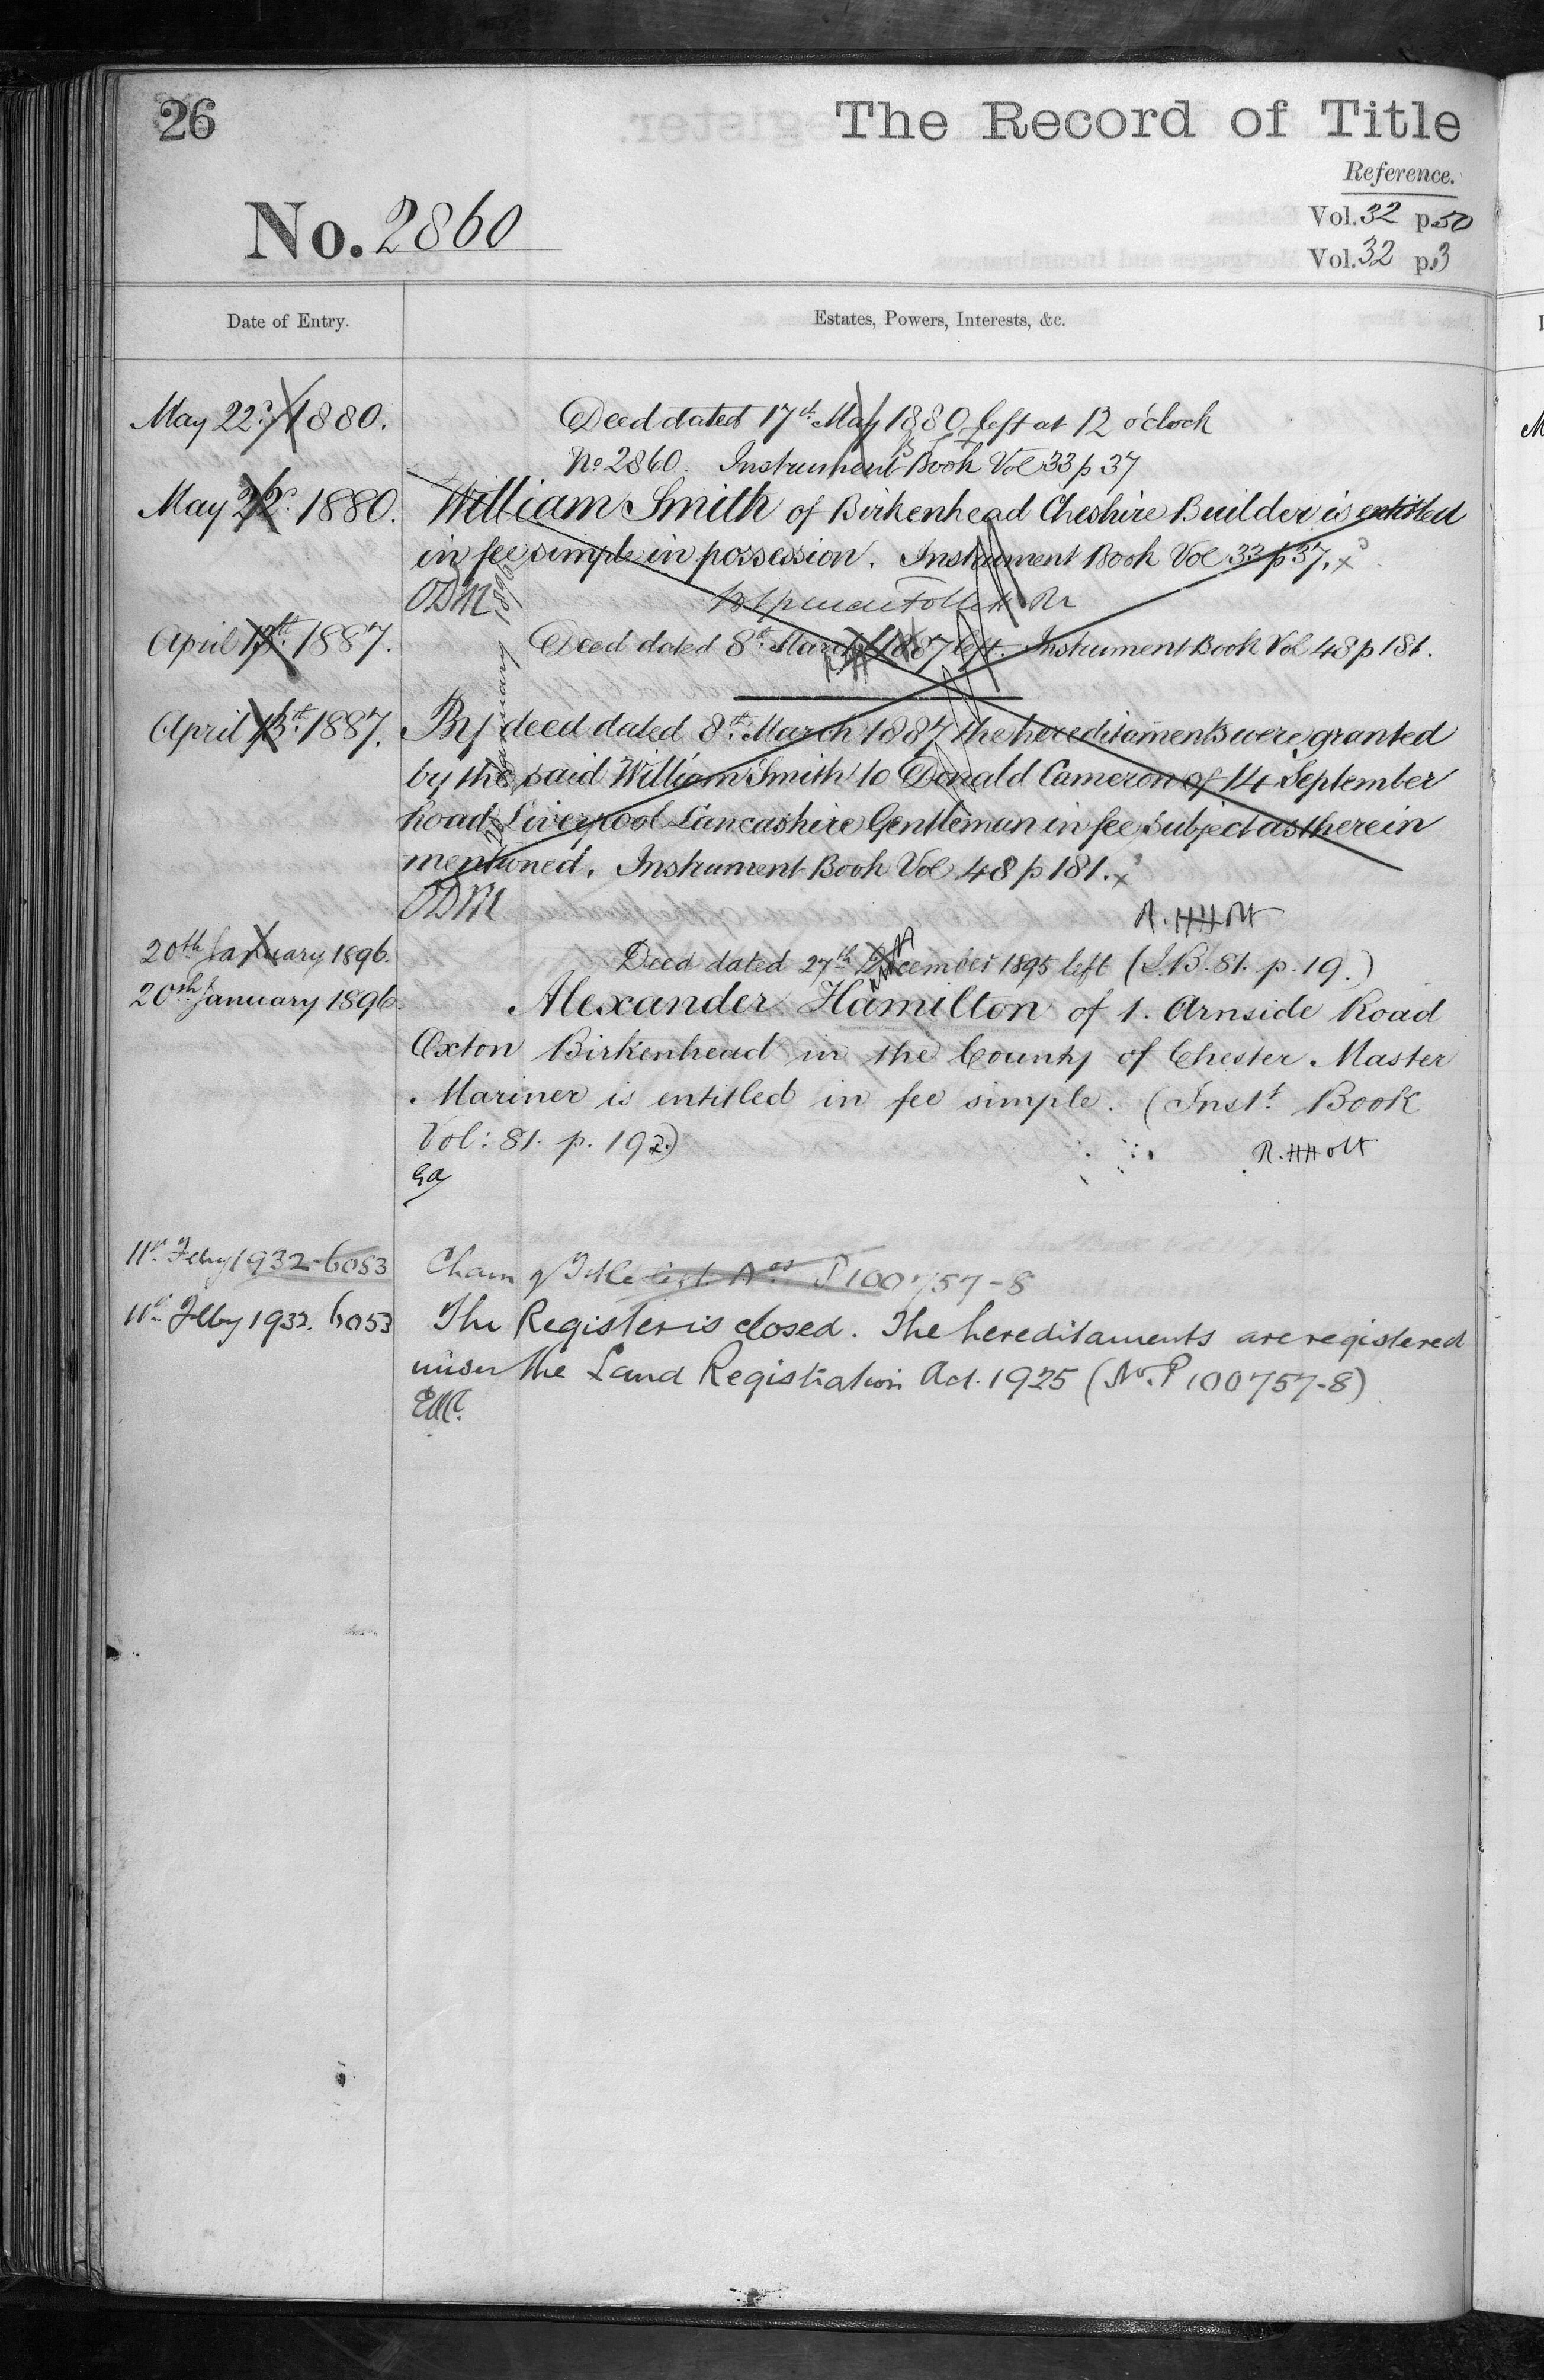 26
The Record of Title
Reference.
No. 2860
Vol. 32 p. 50
Vol. 32 p. 3
Date of Entry.
Estates, Powers, Interests, &c.
May 22d. 1880.
Deed dated 17th. May 1880 left at 12 o'clock
No 2860. Instrument Book Vol 33 p 37
May 22d. 1880.
William Smith of Birkenhead Cheshire Builder is entitled
in fee simple in possession. Instrument Book Vol 33 p 37. x
ODM
April 1887.
Deed dated 8th. March 1887 left. Instrument Book Vol 48 p 181.
April 1887.
By deed dated 8th. March 1887 the hereditaments were granted
by the said William Smith to Donald Cameron of 14 September
Road Liverpool Lancashire Gentleman in fee subject as therein
mentioned. Instrument Book Vol 48 p 181. x
ODM
R. H Holt
20 January 1896
20th January 1896.
Deed dated 27th December 1895 left (I.B. 81. p. 19.)
20th January 1896.
Alexander Hamilton of 1. Arnside Road
Oxton Birkenhead in the County of Chester Master
Mariner is entitled in fee simple. (Inst. Book
Vol: 81. p. 19.)
R. H Holt
11th Feby 1932 - 6053
of Title P100757-8
11th Feby 1932. 6053
The Register is closed. The hereditaments are registered
under the Land Registration Act. 1925 (No. P 100757-8)